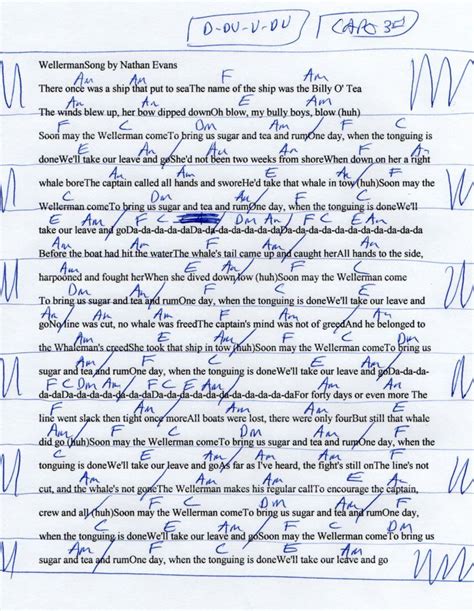 D-DU-U-DU
CAPO 3rd
WellermanSong by Nathan Evans
Am Am F Am
There once was a ship that put to seaThe name of the ship was the Billy O' Tea
Am Am
The winds blew up, her bow dipped downOh blow, my bully boys, blow (huh)
F C Dm Am F C
Soon may the Wellerman comeTo bring us sugar and tea and rumOne day, when the tonguing is
E Am
doneWe'll take our leave and goShe'd not been two weeks from shoreWhen down on her a right
F
whale boreThe captain called all hands and sworeHe'd take that whale in tow (huh)Soon may the
C Dm Am F C
WellermaN comeTo bring us sugar and tea and rumOne day, when the tonguing is doneWe'll
E Am F C Dm Am F C E Am
take our leave and goDa-da-da-da-daDa-da-da-da-da-da-daDa-da-da-da-da-da-da-da-da-da-da
Am
Before the boat had hit the waterThe whale's tail came up and caught herAll hands to the side,
harpooned and fought herWhen she dived down low (huh)Soon may the Wellerman come
To bring us sugar and tea and rumOne day, when the tonguing is doneWe'll take our leave and
goNo line was cut, no whale was freedThe captain's mind was not of greedAnd he belonged to
the Whaleman's creedShe took that ship in tow (huh)Soon may the Wellerman comeTo bring us
sugar and tea and rumOne day, when the tonguing is doneWe'll take our leave and goDa-da-da-
F C Dm Am F C E Am
da-daDa-da-da-da-da-da-daDa-da-da-da-da-da-da-da-da-da-daFor forty days or even more The
line went slack then tight once moreAll boats were lost, there were only fourBut still that whale
did go (huh)Soon may the Wellerman comeTo bring us sugar and tea and rumOne day, when the
tonguing is doneWe'll take our leave and goAs far as I've heard, the fight's still onThe line's not
cut, and the whale's not goneThe Wellerman makes his regular callTo encourage the captain,
crew and all (huh)Soon may the Wellerman comeTo bring us sugar and tea and rumOne day,
when the tonguing is doneWe'll take our leave and goSoon may the Wellerman comeTo bring us
sugar and tea and rumOne day, when the tonguing is doneWe'll take our leave and go